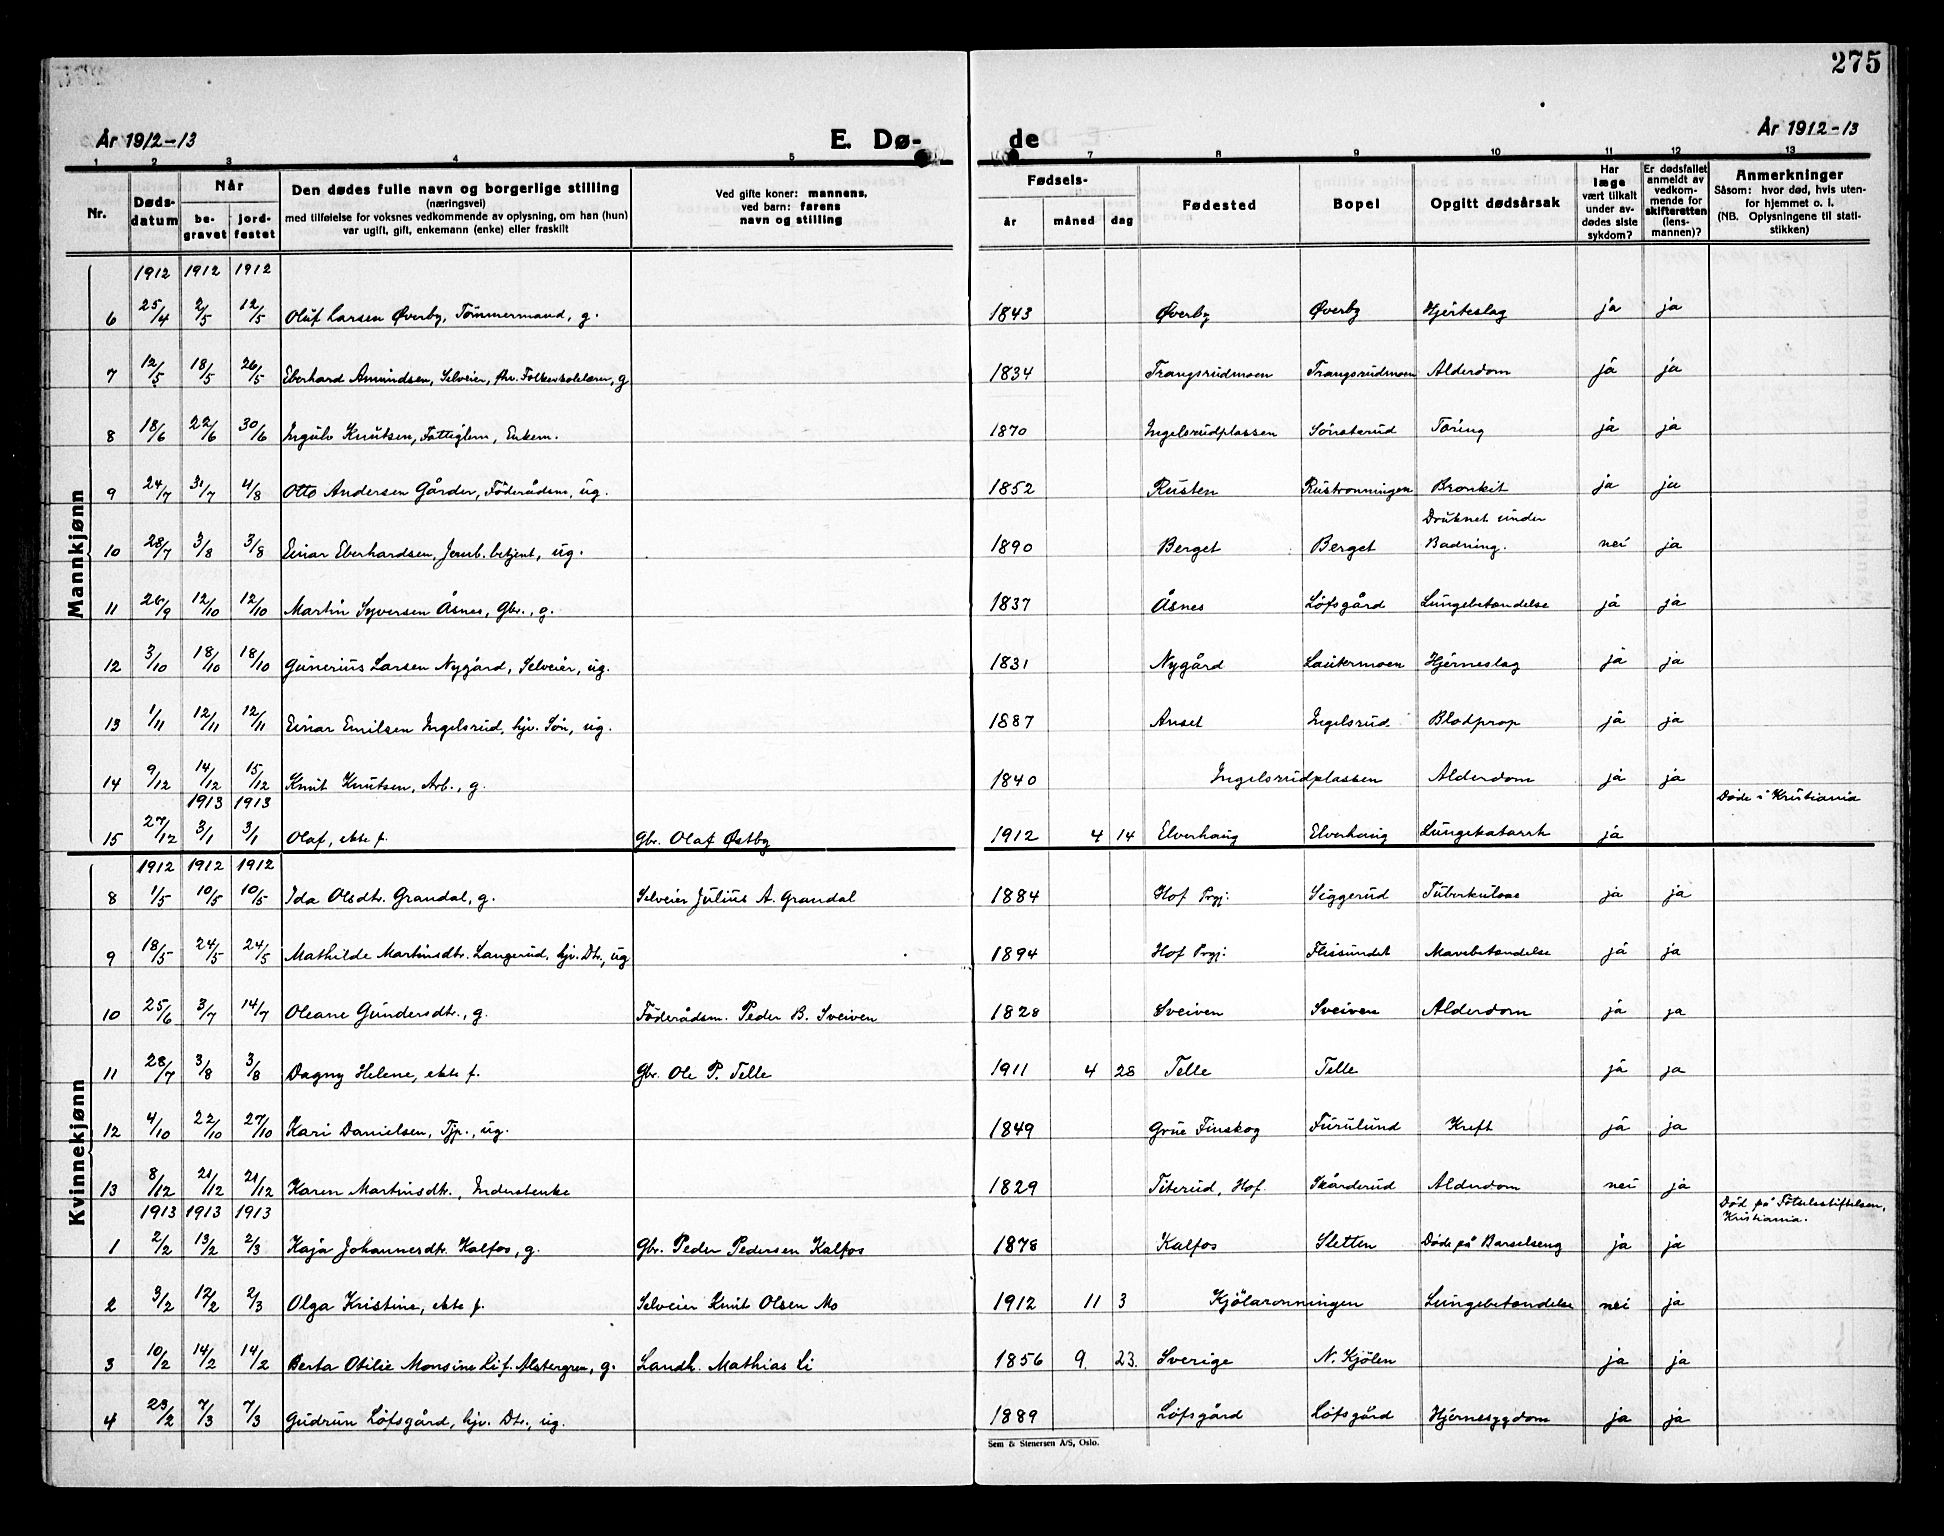 275
År 1912-13
E. Dø-
de
År 1912-13
1 2 3 4 5 7 8 9 10 11 12 13
Nr.
Døds-
datum
Når
be-
gravet
jord-
festet
Den dødes fulle navn og borgerlige stilling
(næringsvei)
med tilføielse for voksnes vedkommende av oplysning, om han (hun)
var ugift, gift, enkemann (enke) eller fraskilt
Ved gifte koner: mannens,
ved barn: farens
navn og stilling
Fødsels-
år måned dag
Fødested
Bopel
Opgitt dødsårsak
Har
læge
vært tilkalt
under av-
dødes siste
sykdom?
Er dødsfallet
anmeldt av
vedkom-
mende for
skifteretten
(lens-
mannen)?
Anmerkninger
Såsom: hvor død, hvis uten-
for hjemmet o. l.
(NB. Oplysningene til stati-
stikken)
Mannkjønn
1912 1912 1912
6 25/4 2/5 12/5 Oluf Larsen Øverby, Tömmermand, g. 1843 Øverby Øverby Hjerteslag ja ja
7 12/5 18/5 26/5 Eberhard Amundsen, Selveier, fhv. Folkeskolelærer, g 1834 Trangsrudmoen Trangsrudmoen Alderdom ja ja
8 18/6 22/6 30/6 Ingulv Knutsen, Fattiglem, Enkem. 1870 Ingelsrudplassen Sönsterud Töring ja ja
9 24/7 31/7 4/8 Otto Andersen Gårder, Föderådsm, ug. 1852 Rusten Rustronningen Bronkit ja ja
10 28/7 3/8 3/8 Einar Eberhardsen, Jernb. betjent, ug. 1890 Berget Berget Druknet under
Badning. nei ja
11 26/9 12/10 12/10 Martin Syversen Åsnes, Gbr., g. 1837 Åsnes Löfsgård Lungebetendelse ja ja
12 3/10 18/10 18/10 Gunerius Larsen Nygård, Selveier, ug. 1831 Nygård Lautermoen Hjerneslag ja ja
13 1/11 12/11 12/11 Einar Emilsen Ingelsrud, hjv. Sön, ug. 1887 Anset Ingelsrud Blodprop ja ja
14 9/12 14/12 15/12 Knut Knutsen, Arb., g. 1840 Ingelsrudplassen Alderdom ja ja
1913 1913 Döde i Kristiania
15 27/12 3/1 3/1 Olaf, ekte f. Gbr. Olaf Østby 1912 4 14 Elverhaug Elverhaug Lungekatarrh ja
Kvinnekjønn
1912 1912 1912
8 1/5 10/5 10/5 Ida Olsdtr. Grandal, g. Selveier Julius A. Grandal 1884 Hof Prgj: Siggerud Tuberkulose ja ja
9 18/5 24/5 24/5 Mathilde Martinsdtr. Langerud, hjv. Dtr., ug 1894 Hof Prgj: Flissundet Mavebetendelse ja ja
10 25/6 3/7 14/7 Oleane Gundersdtr., g. Föderådsm. Peder B. Sveiven 1828 Sveiven Sveiven Alderdom ja ja
11 28/7 3/8 3/8 Dagny Helene, ekte f. Gbr. Ole P. Telle 1911 4 28 Telle Telle ja ja
12 4/10 22/10 27/10 Kari Danielsen, Tjp., ug. 1849 Grue Finskog Furulund Kreft ja ja
13 8/12 21/12 21/12 Karen Martinsdtr., Inderstenke 1829 Titerud, Hof. Skårderud Alderdom nei ja
1913 1913 1913 Död på Fötselsstiftelsen,
Kristiania.
1 2/2 13/2 2/3 Kaja Johannesdtr. Kalfos, g. Gbr. Peder Pedersen Kalfos 1878 Kalfos Sletten Döde på Barselseng ja ja
2 3/2 12/2 2/3 Olga Kristine, ekte f. Selveier Knut Olsen Mo 1912 11 3 Kjölaronningen Lungebetendelse nei ja
3 10/2 14/2 14/2 Berta Otilie Monsine Li f. Alstergren, g. Landh. Mathias Li 1856 9 23. Sverige N. Kjölen ja ja
4 23/2 7/3 7/3 Gudrun Löfsgård, hjv. Dtr., ug. 1889 Löfsgård Löfsgård Hjernesygdom ja ja
Sem & Stenersen A/S, Oslo.